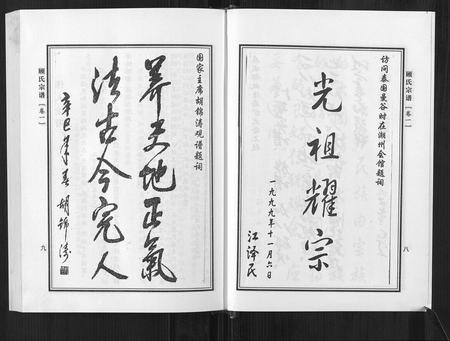 顾氏宗谱
［卷一］
访问泰国曼谷时在潮州会馆题词
光祖耀宗
一九九九年十一月六日
江泽民
八
国家主席胡锦涛观谱题词
养天地正氣
法古今完人
辛巳年春 胡锦涛
顾氏宗谱
［卷一］
九